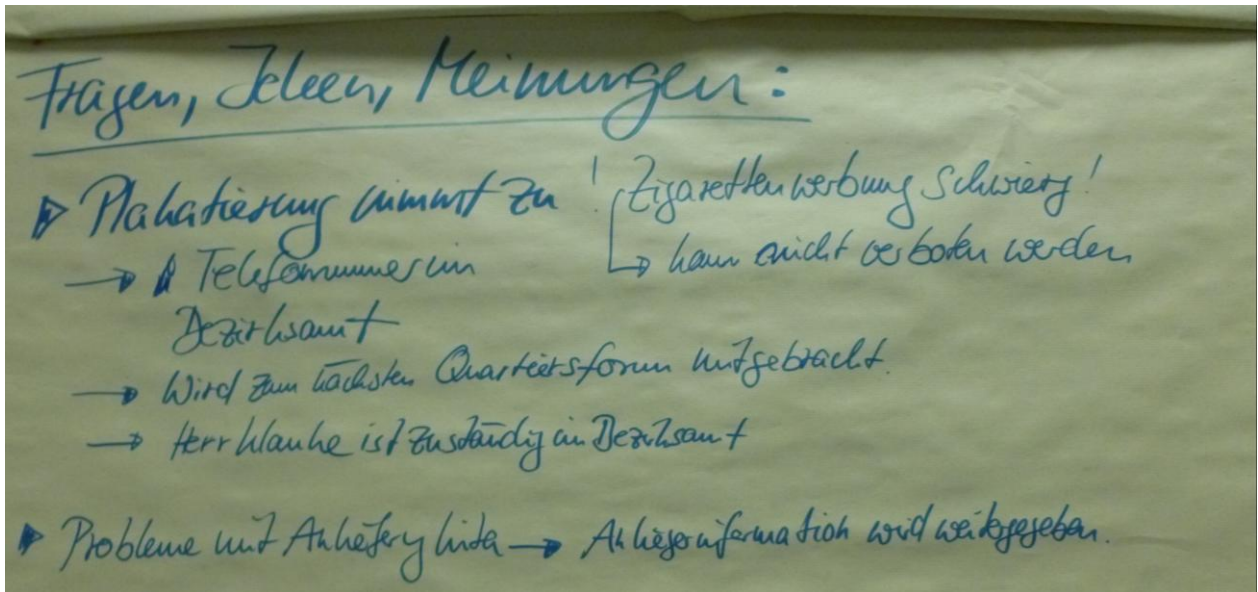 Fragen, Ideen, Meinungen:
Plakatierung nimmt zu!
Zigarettenwerbung schwierig!
→ kann nicht verboten werden
→ Telefonnummer im
Bezirksamt
→ Wird zum nächsten Quartiersforum mitgebracht.
→ Herr Klauke ist zuständig im Bezirksamt
Probleme mit Anlieferg → Anliegerinformation wird weitergegeben.